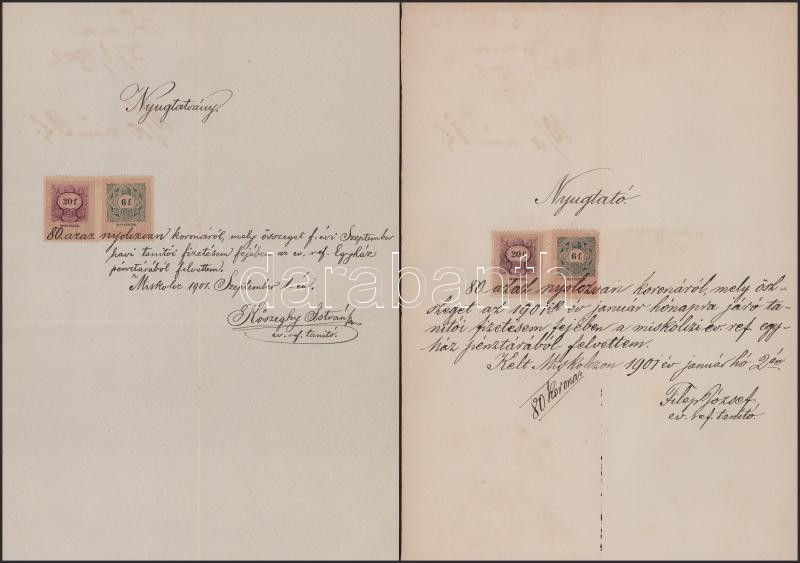 Nyugtatvány.
20 f
6 f
80. azaz nyolczvan koronáról, mely összeget f. évi Szeptember
havi tanitói fizetésem fejében az ev. ref. Egyház
pénztárából felvettem.
Miskolcz 1901. Szeptember 1 én.
Kőszeghy István
ev. ref. tanitó.
Nyugtató.
20 f
6 f
80 azaz nyolczvan koronáról, mely ösz-
szeget az 1901ik év január hónapra járó ta-
nitói fizetésem fejében a miskolczi ev. ref egy-
ház pénztárából felvettem.
Kelt Miskolczon 1901 év január hó 2án.
80 korona.
Filep József,
ev. ref. tanitó.
darabanth